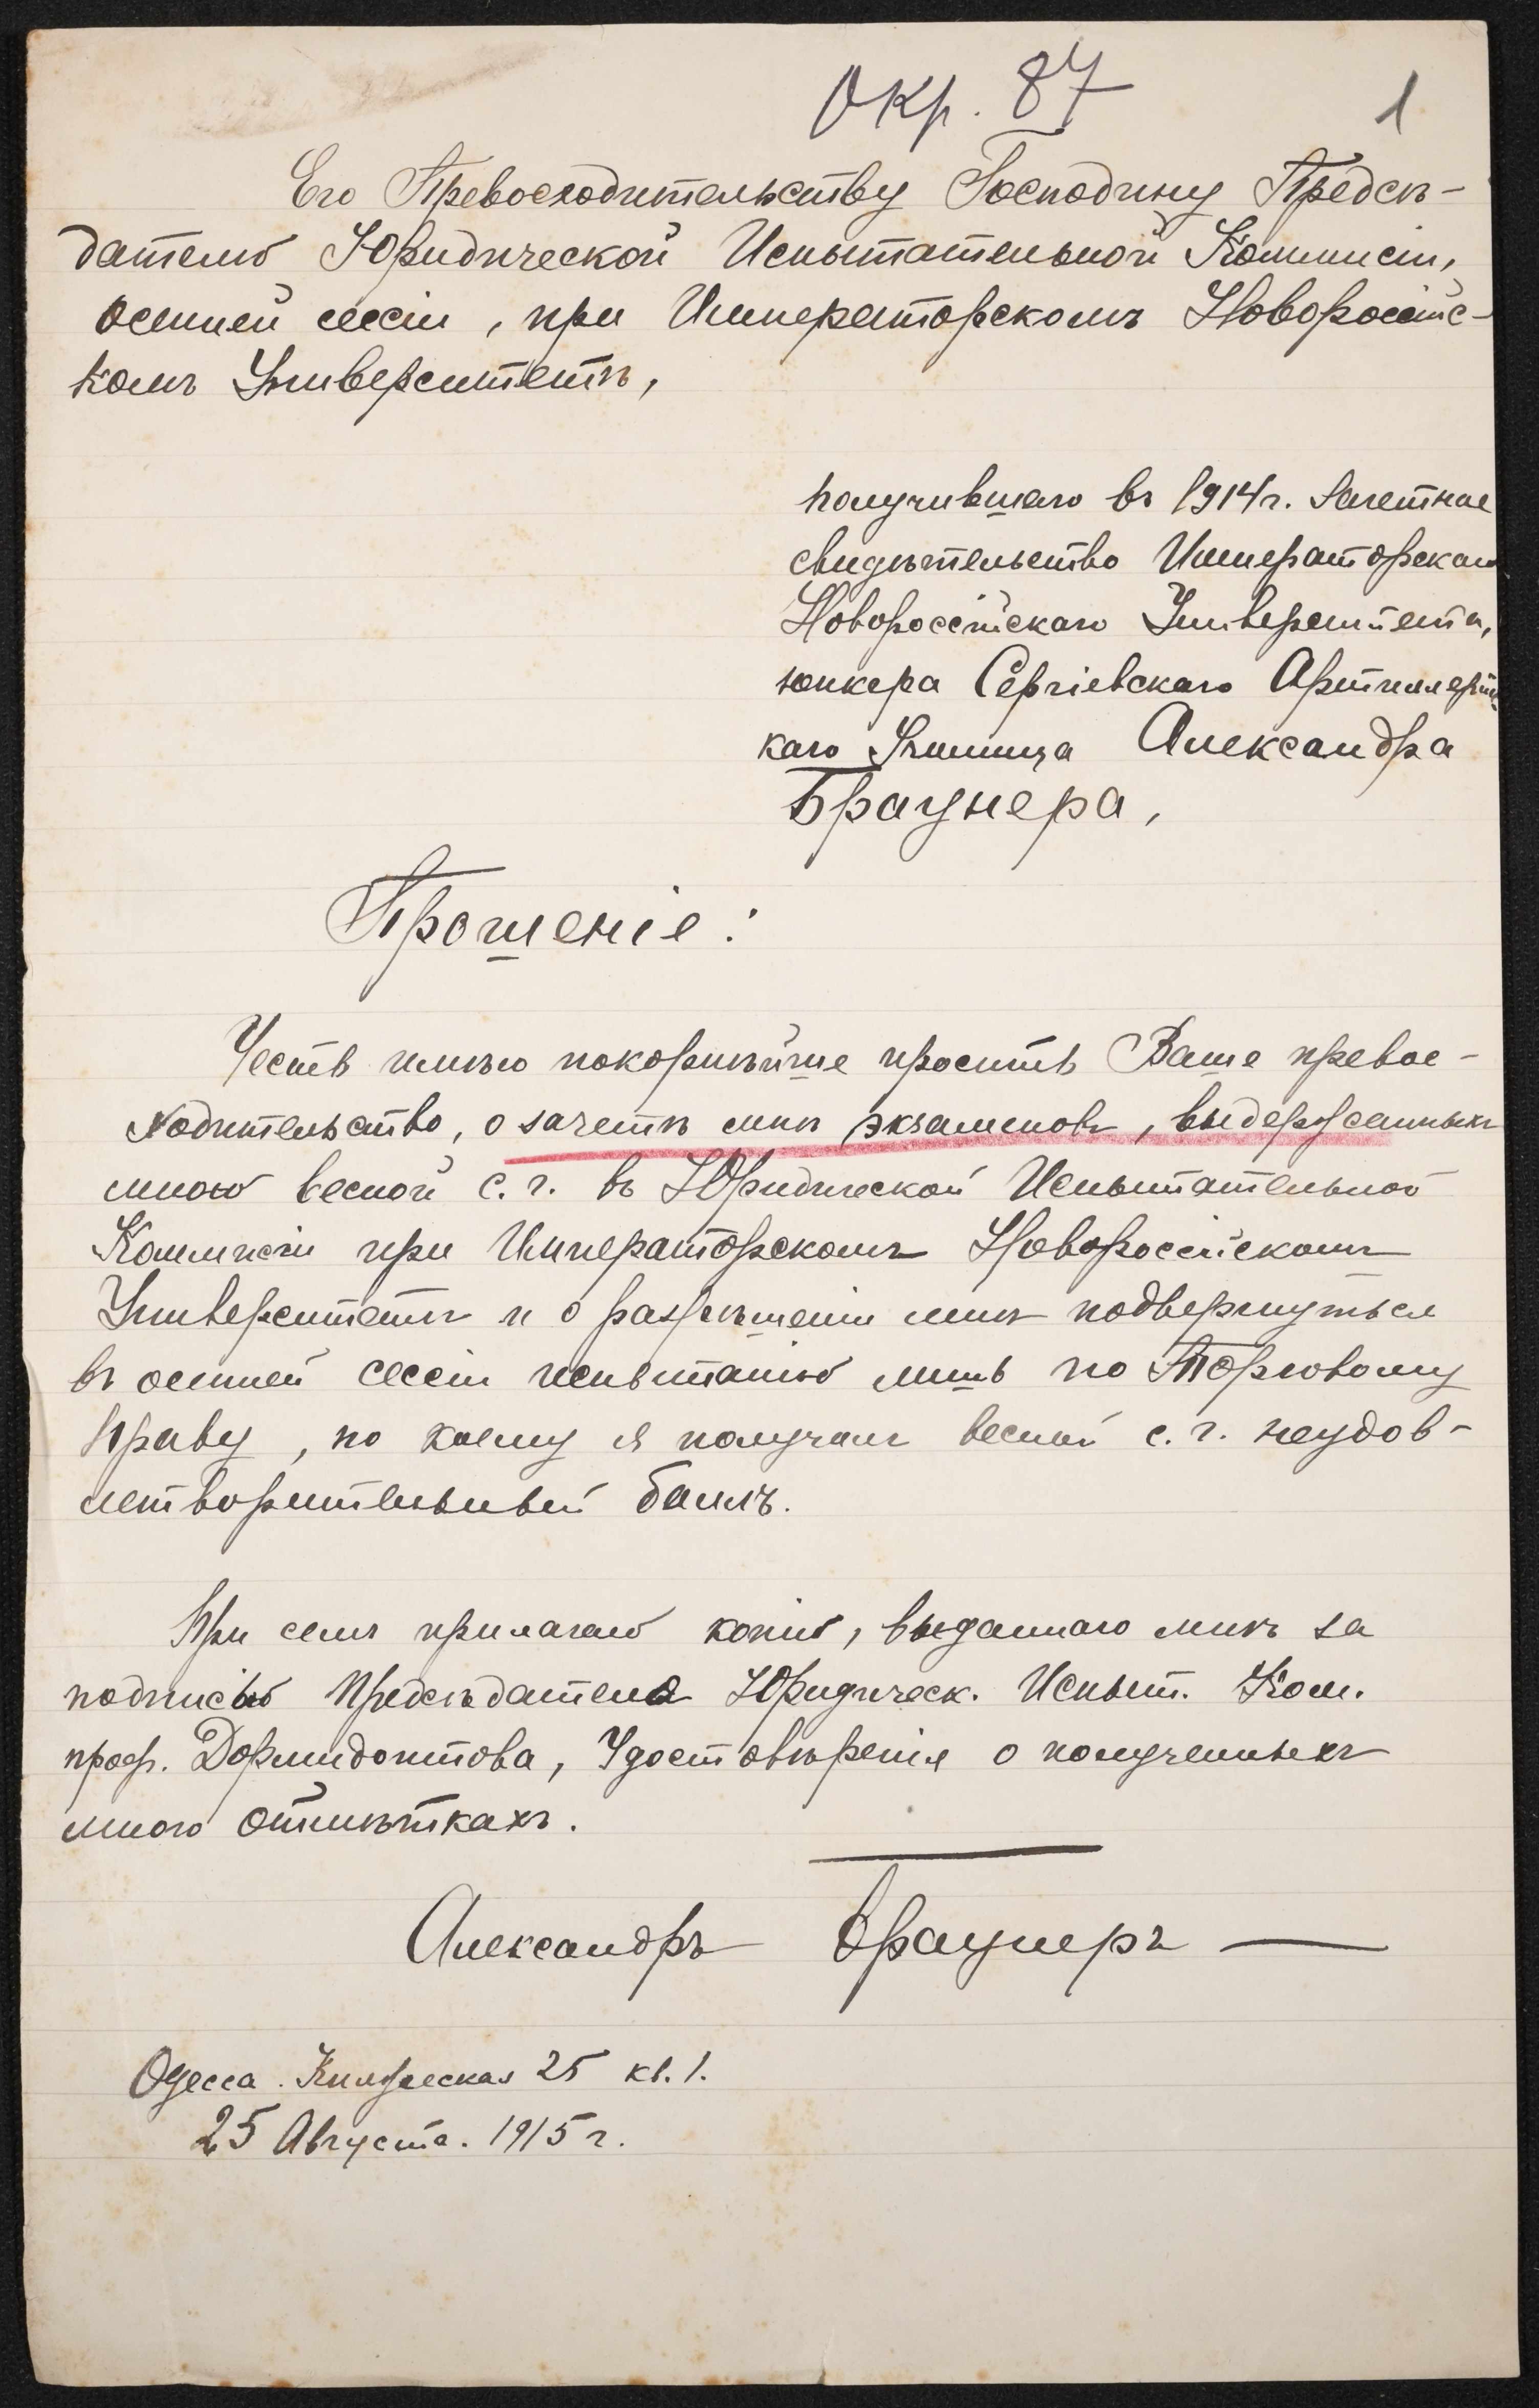 Окр. 87
1
Его Превосходительству Господину Предсѣ-
дателю Юридической Испытательной Коммисіи,
осенней сессіи, при Императорскомъ Новороссійс-
комъ Университетѣ,
получившаго въ 1914 г. Зачетное
свидѣтельство Императорскаго
Новороссійскаго Университета,
юнкера Сергіевскаго Артиллерійс-
каго Училища Александра
Браунера,
Прошеніе:
Честь имѣю покорнѣйше просить Ваше превос-
ходительство, о зачетѣ мнѣ экзаменовъ, выдержанныхъ
мною весной с. г. въ Юридической Испытательной
Коммисіи при Императорскомъ Новороссійскомъ
Университетѣ и о разрѣшеніи мнѣ подвергнуться
въ осенней сессіи испытанію лишь по Торговому
праву, по коему я получилъ весной с. г. неудов-
летворительный баллъ.
При семъ прилагаю копію, выданнаго мнѣ за
подписью Предсѣдателя Юридическ. Испыт. Ком.
проф. Дормидонтова, Удостовѣренія о полученныхъ
мною отмѣткахъ.
Александръ Браунеръ
Одесса. 25 кв. 1.
25 Августа. 1915 г.